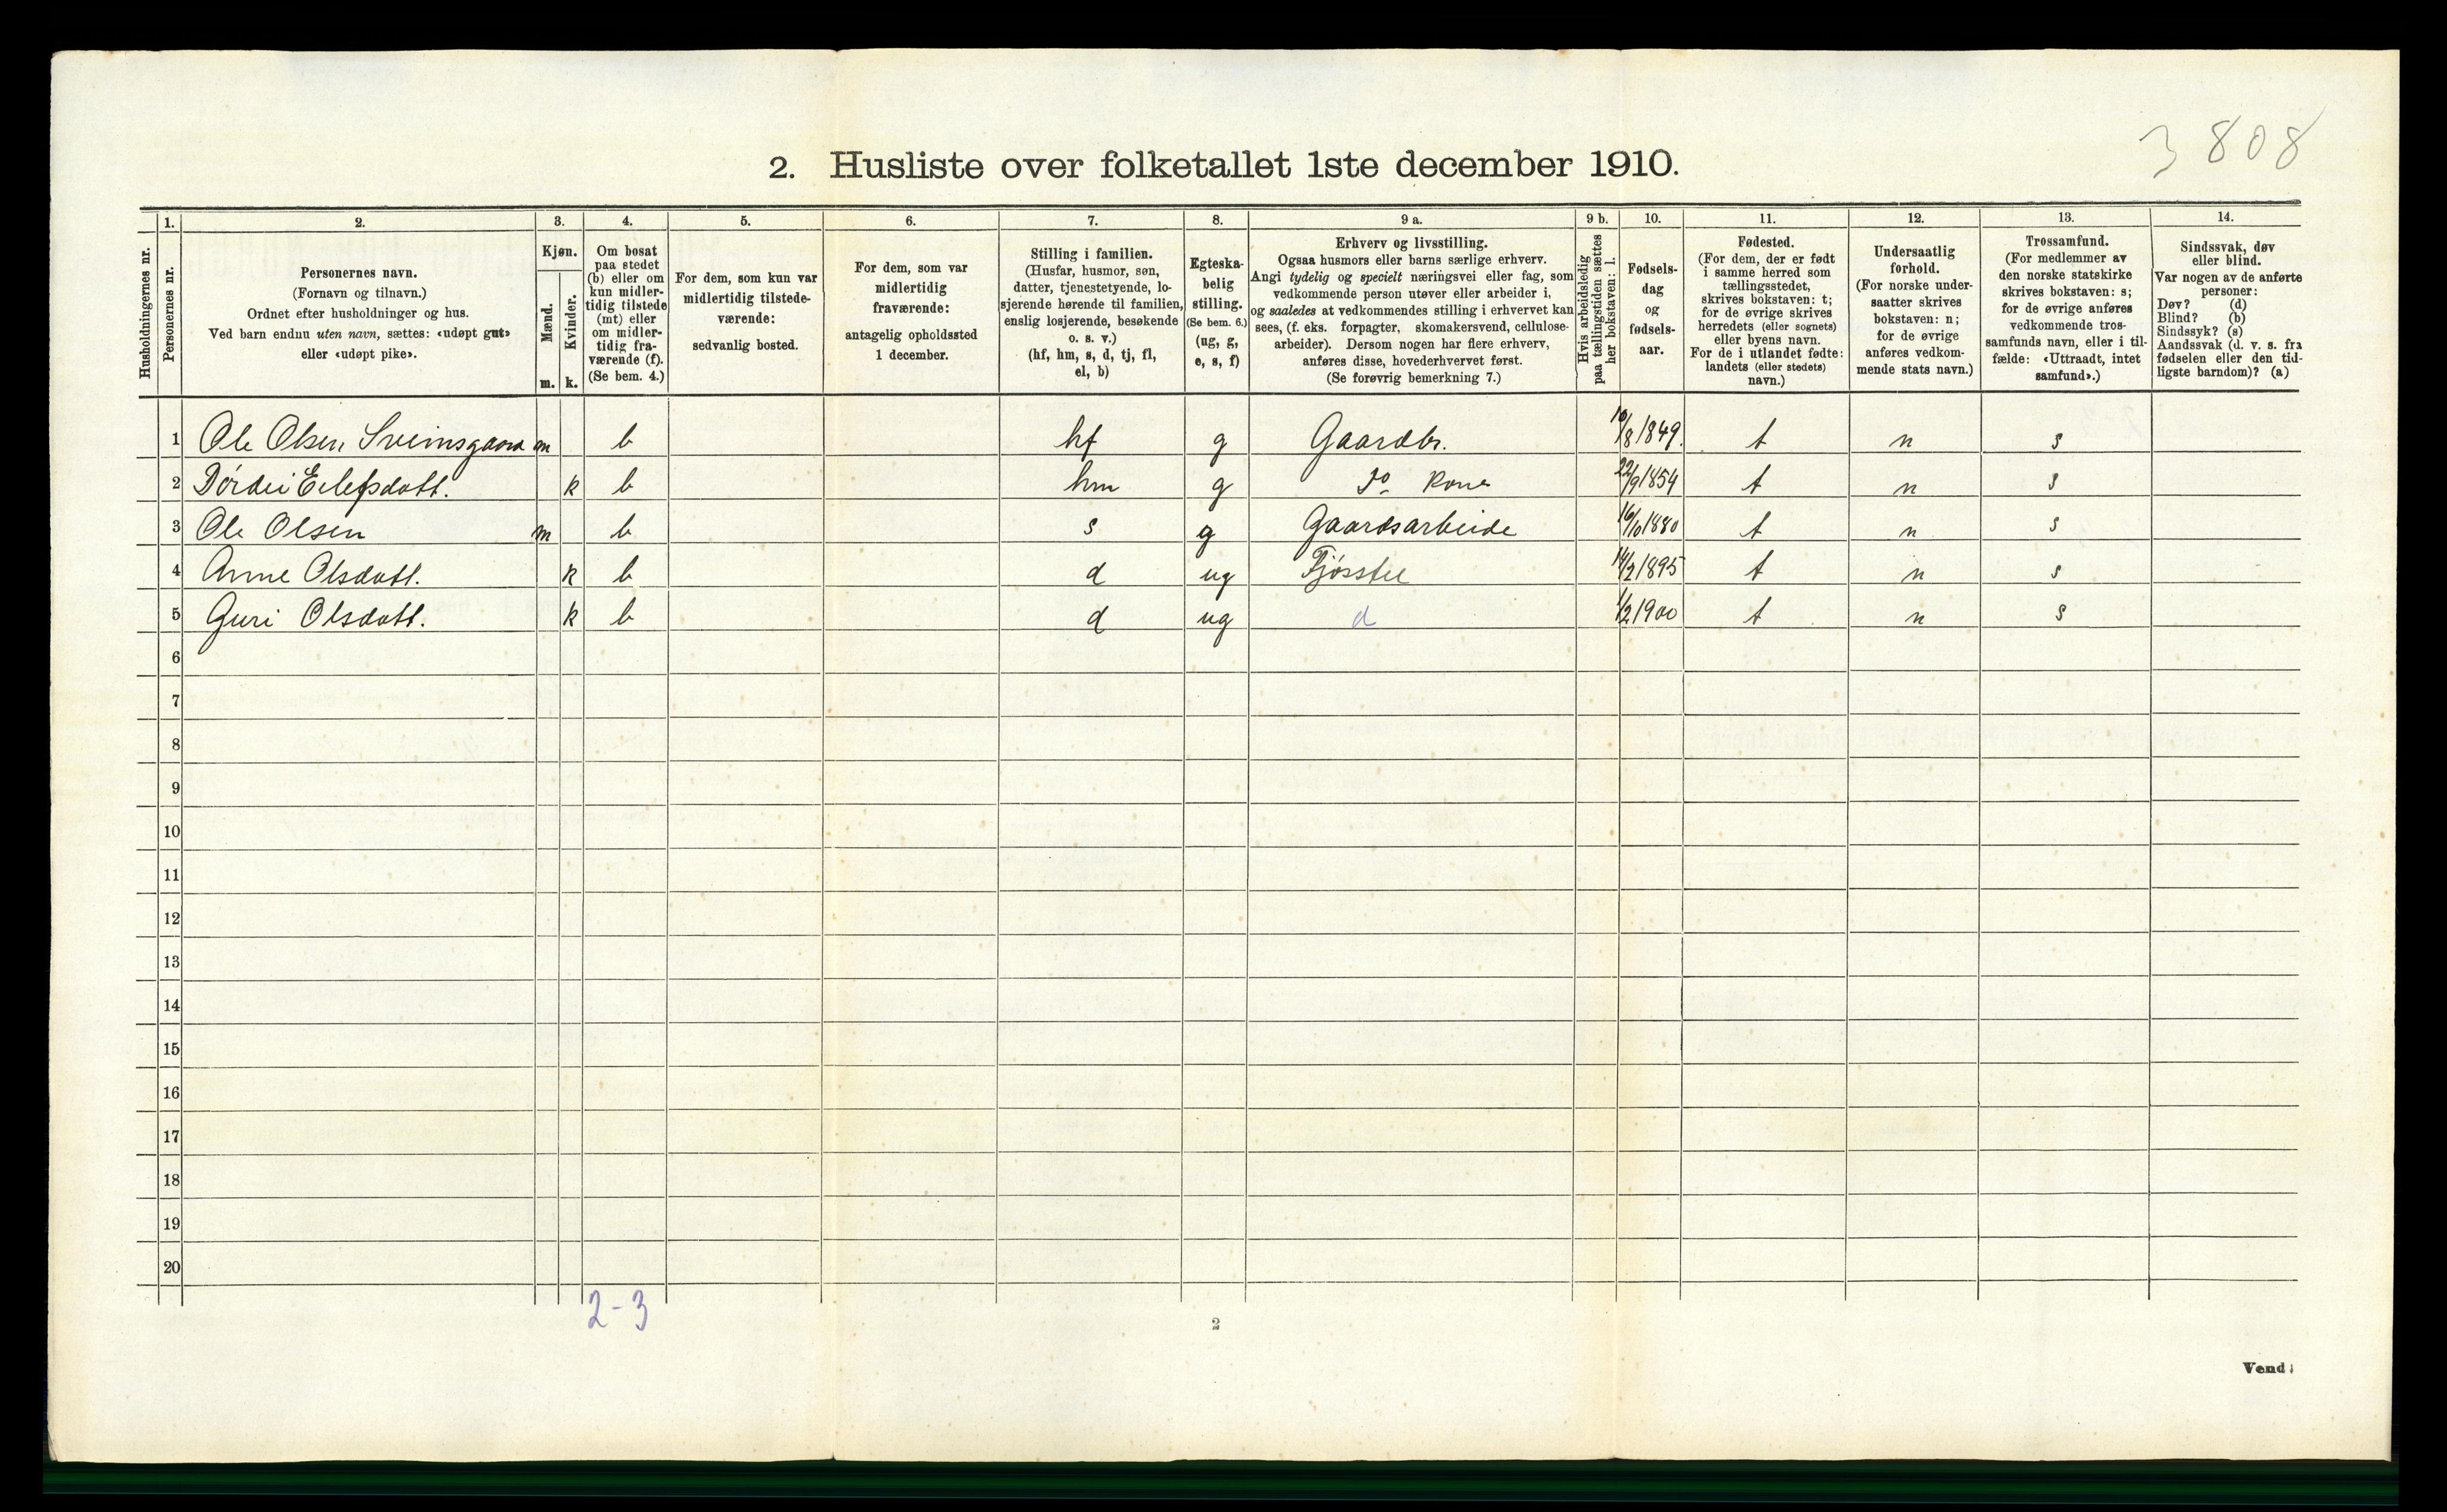 3 808
2. Husliste over folketallet 1ste december 1910.
Husholdningernes nr.
1.
Personernes nr.
2.
Personernes navn.
(Fornavn og tilnavn.)
Ordnet efter husholdninger og hus.
Ved barn endnu uten navn, sættes: «udøpt gut»
eller «udøpt pike».
3.
Kjøn.
Mænd.
Kvinder.
m. k.
4.
Om bosat
paa stedet
(b) eller om
kun midler-
tidig tilstede
(mt) eller
om midler-
tidig fra-
værende (f).
(Se bem. 4.)
5.
For dem, som kun var
midlertidig tilstede-
værende:
sedvanlig bosted.
6.
For dem, som var
midlertidig
fraværende:
antagelig opholdssted
1 december.
7.
Stilling i familien.
(Husfar, husmor, søn,
datter, tjenestetyende, lo-
sjerende hørende til familien,
enslig losjerende, besøkende
o. s. v.)
(hf, hm, s, d, tj, fl,
el, b)
8.
Egteska-
belig
stilling.
(Se bem. 6.)
(ug, g,
e, s, f)
9 a.
Erhverv og livsstilling.
Ogsaa husmors eller barns særlige erhverv.
Angi tydelig og specielt næringsvei eller fag, som
vedkommende person utøver eller arbeider i,
og saaledes at vedkommendes stilling i erhvervet kan
sees, (f. eks. forpagter, skomakersvend, cellulose-
arbeider). Dersom nogen har flere erhverv,
anføres disse, hovederhvervet først.
(Se forøvrig bemerkning 7.)
9 b.
Hvis arbeidsledig
paa tællingstiden sættes
her bokstaven: l.
10.
Fødsels-
dag
og
fødsels-
aar.
11.
Fødested.
(For dem, der er født
i samme herred som
tællingsstedet,
skrives bokstaven: t;
for de øvrige skrives
herredets (eller sognets)
eller byens navn.
For de i utlandet fødte:
landets (eller stedets)
navn.)
12.
Undersaatlig
forhold.
(For norske under-
saatter skrives
bokstaven: n;
for de øvrige
anføres vedkom-
mende stats navn.)
13.
Trossamfund.
(For medlemmer av
den norske statskirke
skrives bokstaven: s;
for de øvrige anføres
vedkommende tros-
samfunds navn, eller i til-
fælde: «Uttraadt, intet
samfund».)
14.
Sindssvak, døv
eller blind.
Var nogen av de anførte
personer:
Døv? (d)
Blind? (b)
Sindssyk? (s)
Aandssvak (d. v. s. fra
fødselen eller den tid-
ligste barndom)? (a)
1 Ole Olsen m b hf g Gaardbr. 10/8 1849. t n s
2 Eilefsdatt. k b hm g Do Kone 22/9 1854 t n s
3 Ole Olsen m b s g Gaardsarbeide 16/10 1880 t n s
4 Anne Olsdatt. k b d ug Fjøsstel 14/2 1895 t n s
5 Guri Olsdatt. k b d ug d 1/2 1900 t n s
6
7
8
9
10
11
12
13
14
15
16
17
18
19
20
2-3
2
Vend!